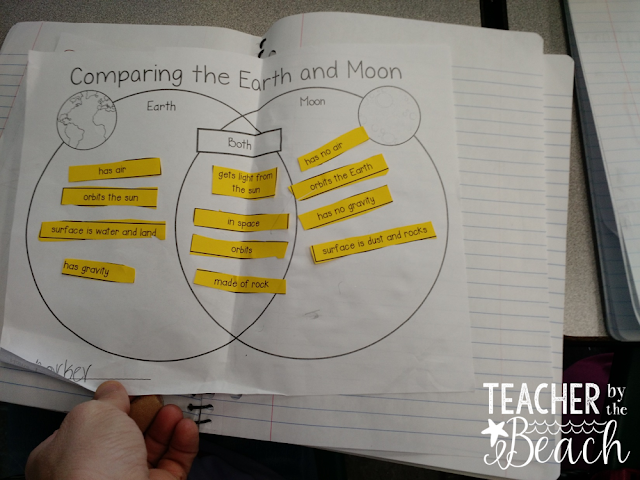 Comparing the Earth and Moon
Earth
Moon
Both
has air
orbits the sun
surface is water and land
has gravity
gets light from
the sun
in space
orbits
made of rock
has no air
orbits the Earth
has no gravity
surface is dust and rocks
TEACHER by the
Beach